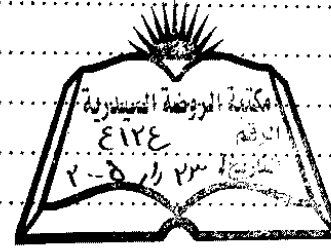 مكتبة الروضة الحيدرية
الرقم ٤١٢٤
التاريخ ٢٣